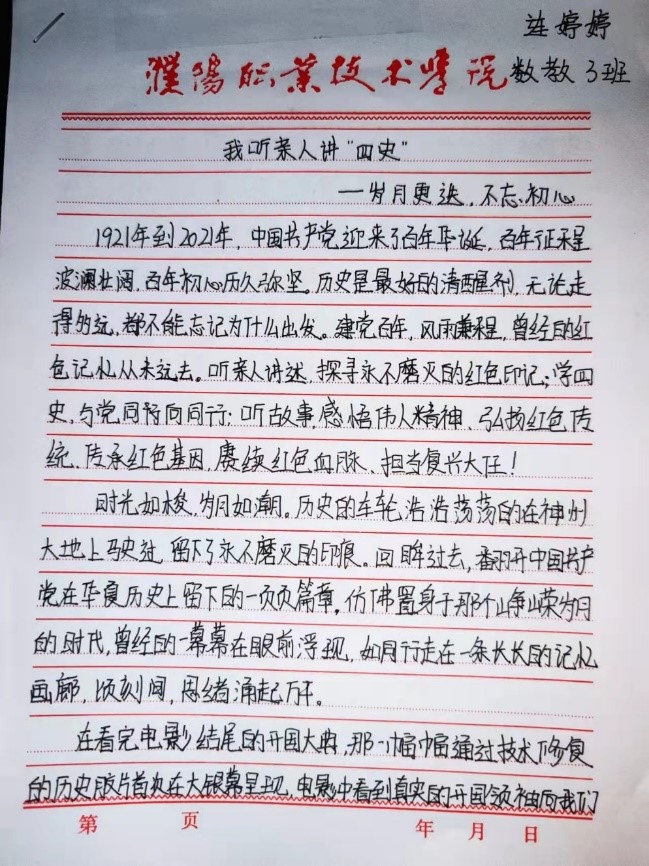 连婷婷
濮阳职业技术学院 数教3班
我听亲人讲“四史”
一岁月更迭,不忘初心
1921年到2021年,中国共产党迎来了百年华诞,百年征程
波澜壮阔,百年初心历久弥坚。历史是最好的清醒剂,无论走
得多远,都不能忘记为什么出发。建党百年,风雨兼程,曾经的红
色记忆从未远去。听亲人讲述,探寻永不磨灭的红色印记;学四
史,与党同符向同行;听故事,感悟伟人精神、弘扬红色传
统、传承红色基因,赓续红色血脉、担当复兴大任!
时光如梭,岁月如潮。历史的车轮浩浩荡荡的在神州
大地上驶过,留下了永不磨灭的印痕。回眸过去,翻开中国共产
党在华夏历史上留下的一页页篇章,仿佛置身于那个峥嵘岁月
的时代,曾经的一幕幕在眼前浮现,如同行走在一条长长的记忆
画廊,顷刻间,思绪涌起万千。
在看完电影结尾的开国大典,那一幅幅通过技术修复
的历史胶片首次在大银幕呈现,电影中看到真实的开国领袖向我们
第 页 年 月 日